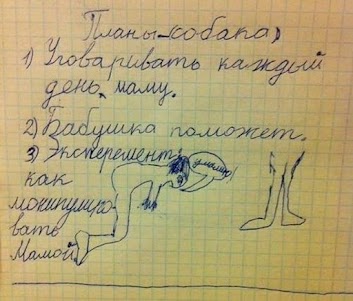 Планы-собака)
1) Уговаривать каждый
день маму.
2) Бабушка поможет.
3) Эксперемент:
как
монипулиро
вать
Мамой